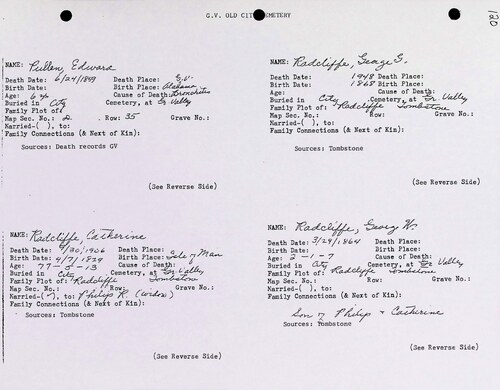 G.V. OLD CITY CEMETERY
120
NAME: Pullen, Edward
Death Date: 6/24/1899 Death Place: G.V.
Birth Date: Birth Place: Alabama
Age: Cause of Death: Bronchitis
Buried in City Cemetery, at Gr Valley
Family Plot of:
Map Sec. No.: 2. Row: 35 Grave No.:
Married-( ), to:
Family Connections (& Next of Kin):
Sources: Death records GV
(See Reverse Side)
NAME: Radcliffe, George G.
Death Date: 1948 Death Place:
Birth Date: 1868 Birth Place:
Age: Cause of Death:
Buried in City Cemetery, at Gr Valley
Family Plot of: Radcliffe Tombstone
Map Sec. No.: Row: Grave No.:
Married-( ), to:
Family Connections (& Next of Kin):
Sources: Tombstone
(See Reverse Side)
NAME: Radcliffe, Catherine
Death Date: /30/1906 Death Place:
Birth Date: 4/7/1829 Birth Place: Isle of Man
Age: 77-8-13 Cause of Death:
Buried in City Cemetery, at Gr Valley
Family Plot of: Radcliffe Tombstone
Map Sec. No.: Row: Grave No.:
Married-( ), to: Philip R. (widow)
Family Connections (& Next of Kin):
Sources: Tombstone
(See Reverse Side)
NAME: Radcliffe, Georg W.
Death Date: 3/29/1864 Death Place:
Birth Date: Birth Place:
Age: 2-1-7 Cause of Death:
Buried in City Cemetery, at Gr Valley
Family Plot of: Radcliffe Tombstone
Map Sec. No.: Row: Grave No.:
Married-( ), to:
Family Connections (& Next of Kin):
Son of Philip + Catherine
Sources: Tombstone
(See Reverse Side)